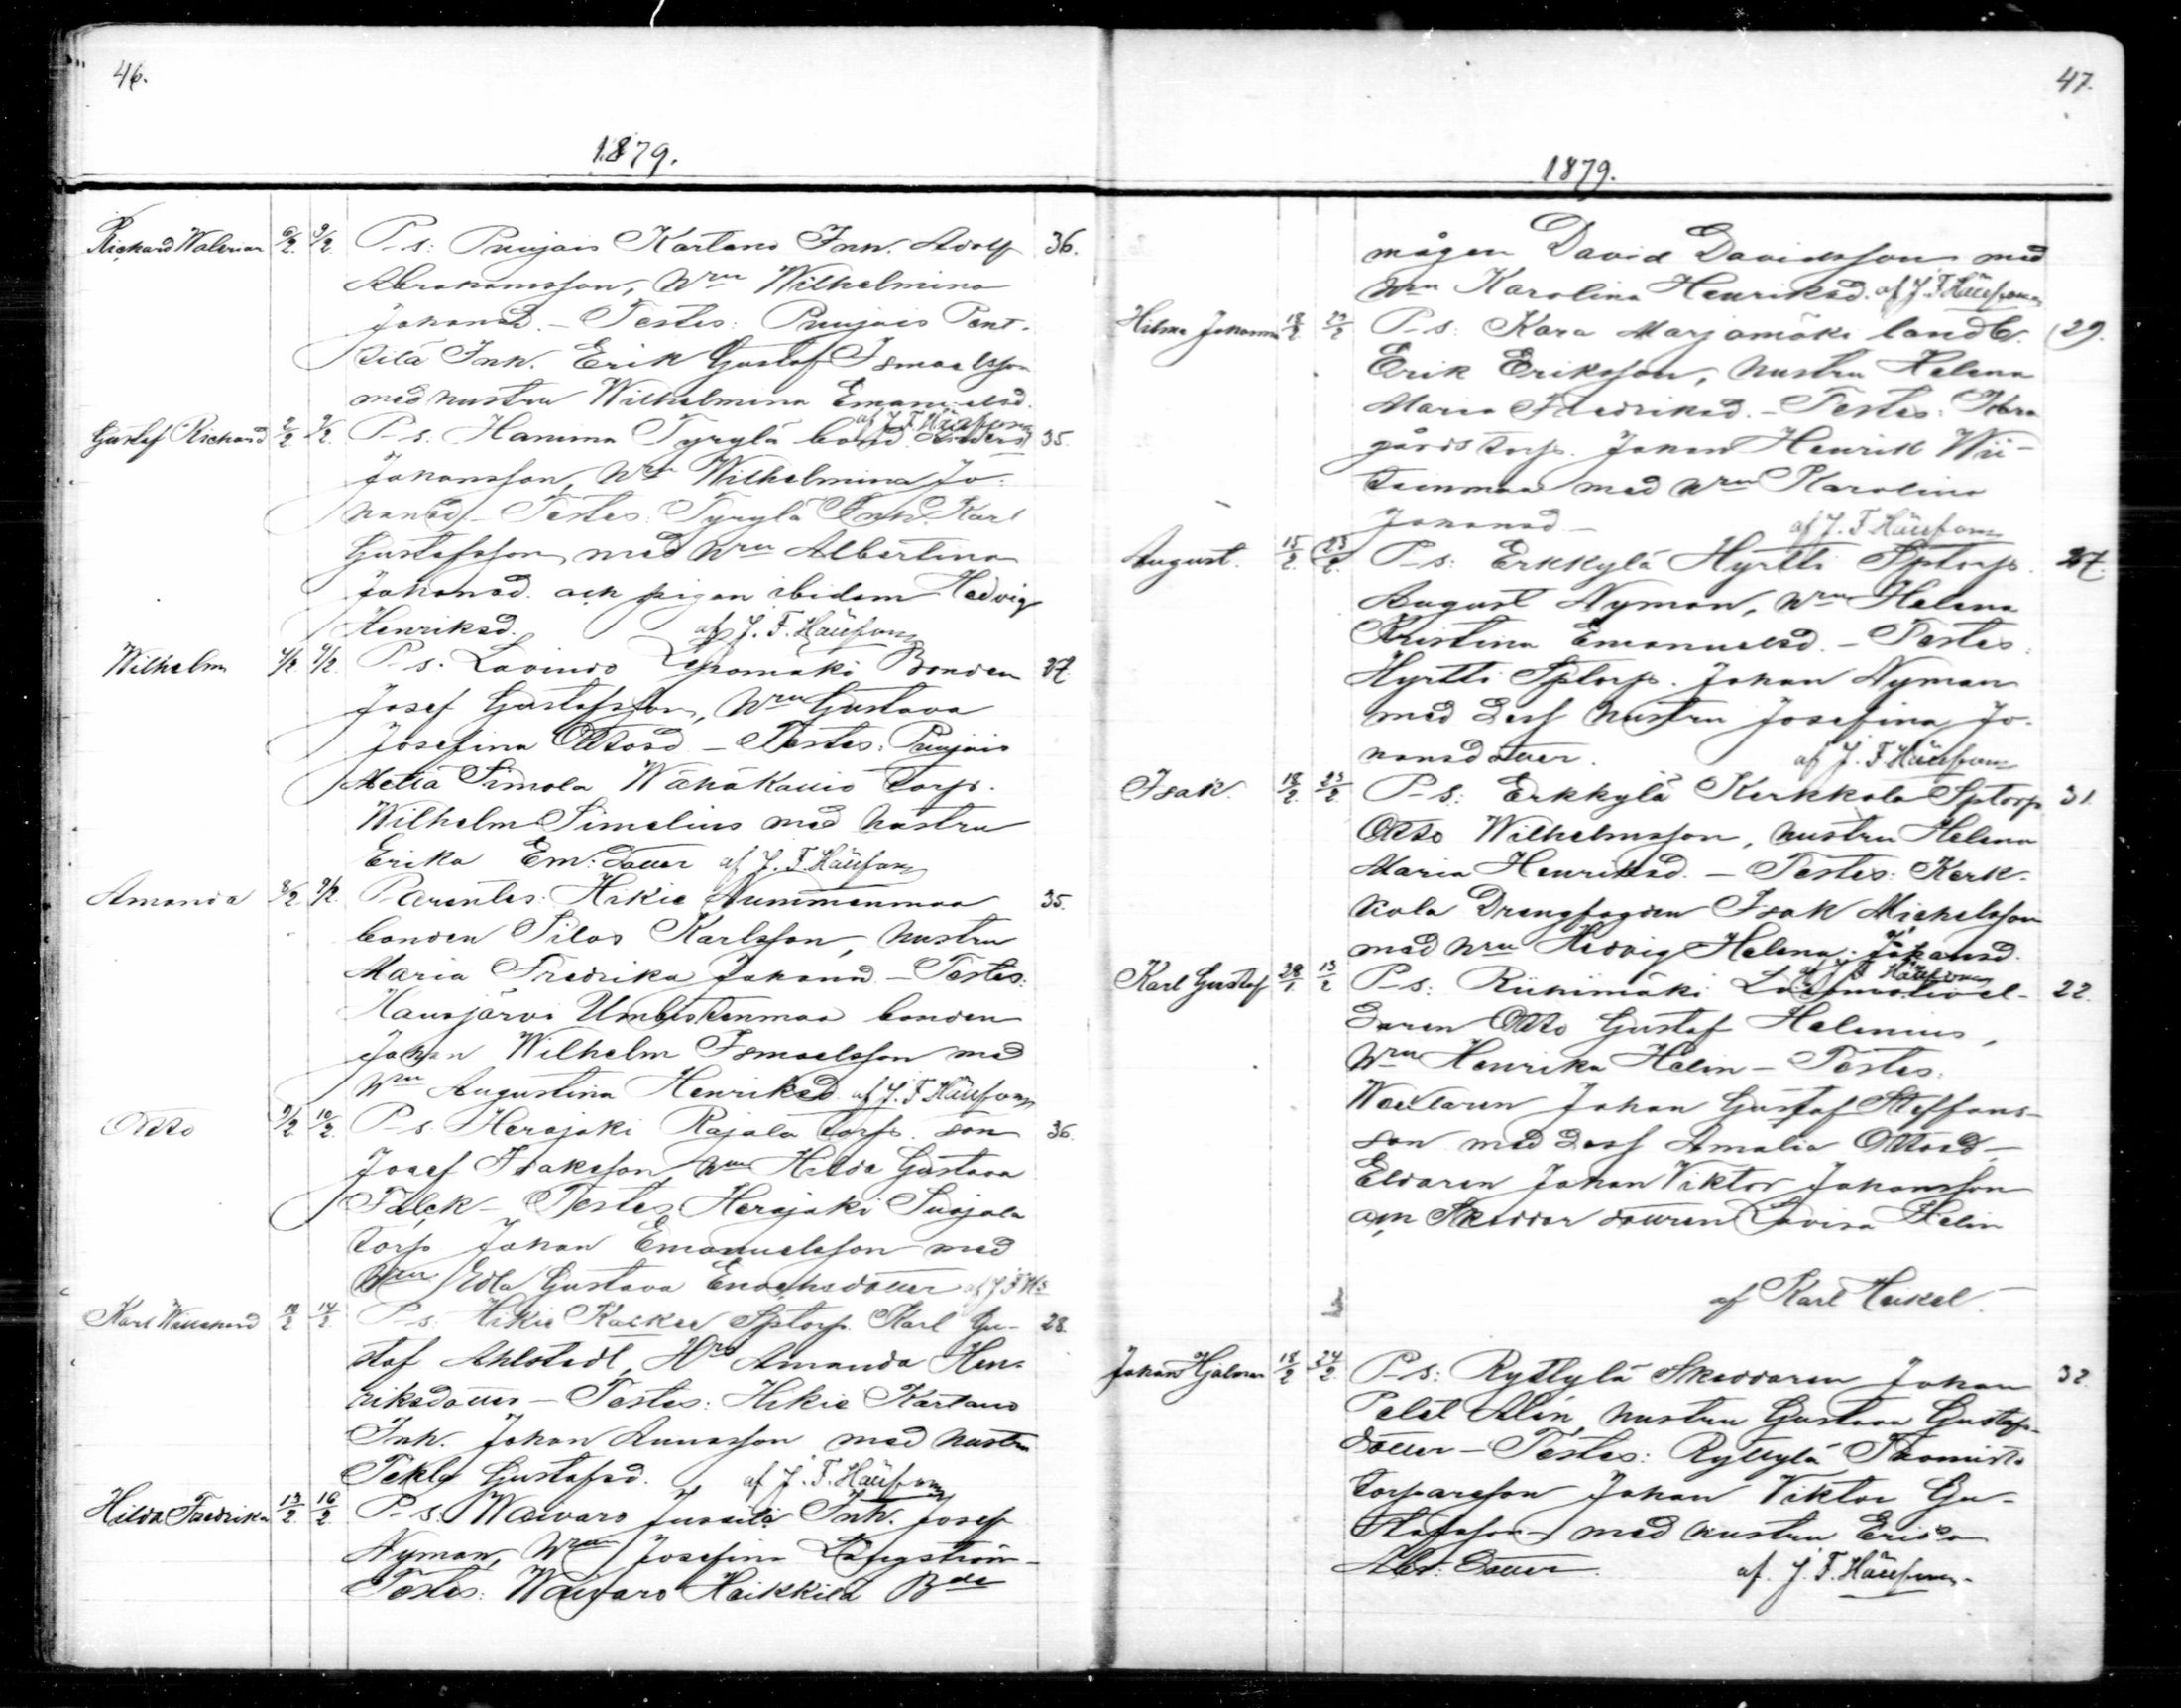 46.
1879.
Richard Walerian 6/2. 9/2. P-s: Puujais Kartano Inh. Adolf 36.
Abrahamsson, Hru Wilhelmina
Johansd. - Testes: Puujais Pent-
tilä Inh. Erik Gustaf Ismaelsson
med hustru Wilhelmina Emanuelsd.
af J. F. Häufsom
Gustaf Richard 2/2 9/2. P-s. Hamina Tyrylä bond. Anders 35.
Johansson, Hru Wilhelmina Jo-
hansd - Testes: Tyrylä Inh. Karl
Gustafsson med Hru Albertina
Johansd. och pigan ibidem Hedvig
Henriksd. af J. F. Häufsom
Wilhelm 4/2. 9/2. P-s. Lavinto Lepomäki Bonden 27.
Josef Gustafsson, Hru Gustava
Josefina Ottosd - Testes: Puujais
Mella Simola Wähäkauio Torp.
Wilhelm Simelius med hustru
Erika Em: dotter af J. F. Häufsom
Amanda 8/2 9/2. Parentes: Hikie Nummenmaa 35.
bonden Silas Karlsson, hustru
Maria Fredrika Johansd - Testes:
Hausjärvi Umbistenmaa bonden
Johan Wilhelm Ismaelsson med
Hru Augustina Henriksd af J. F. Häufsom
Otto 9/2 10/2. P-s Herajoki Rajala torp. son 36.
Josef Isaksson Hru Hilda Gustava
Falck - Testes Herajoki Suojala
Torp Johan Emanuelsson med
Hru Edla Gustava Enochsdotter af J F H:s
Karl 10/2 14/2 P-s Hikie Sptorp. Karl Gu- 28.
staf Ahlstedt, Hru Amanda Hen-
riksdotter - Testes: Hikie Kartano
Inh. Johan med hustru
Tekla Gustafsd. af J. F. Häufsom
Hilda Fredrika 13/2. 16/2. P-s. Waivaro Jussila Inh. Josef
Nyman, Hru Josefina Långström -
Testes: Waivaro Heikkilä Bde
47.
1879.
mågen David Davidsson med
Hru Karolina Henriksd. af J. F. Häufsom
Hilma Johanna 18/2. 22/2 P-s: Kara Marjamäki landb. 29.
Erik Eriksson, hustru Helena
Maria Fredriksd. - Testes: Kara
gårds torp. Johan Henrik Wii-
tainmaa med Hru Karolina
Johansd - af J. F. Häufsom
August. 15/2. 23/2. P-s: Erkkylä Hyrtti Sptorp. 27.
August Nyman, Hru Helena
Kristina Emanuelsd. - Testes:
Hyrtti Sptorp. Johan Nyman
med dess hustru Josefina Jo-
hansdotter. af J. F. Häufsom
Isak. 18/2. 23/2. P-s: Erkkylä Kerkkola Sptorp 31.
Otto Wilhelmsson, hustru Helena
Maria Henriksd. - Testes: Kerk-
kola Drengfogden Isak Michelsson
med Hru Hedvig Helena Johansd.
af J F Häufsom
Karl Gustaf 28/1. 13/2 P-s: Riihimäki Lokomotivel- 22.
daren Otto Gustaf Helenius,
Hru Henrika Helin - Testes:
Waxlaren Johan Gustaf Steffans-
son med dess Amalia Ottosd -
Eldaren Johan Viktor Johansson
och Skeddar dottren Lovisa Helin
af Karl Heikel.
Johan Hjalmar 18/2 24/2. P-s: Ryttylä Skeddaren Johan 32.
Alén, hustru Gustava Gustafs-
dotter - Testes: Ryttylä Tuomisto
Torparson Johan Viktor Gu-
stafsson med hustru Erica
Abr: dotter. af. J. F. Häufsom.